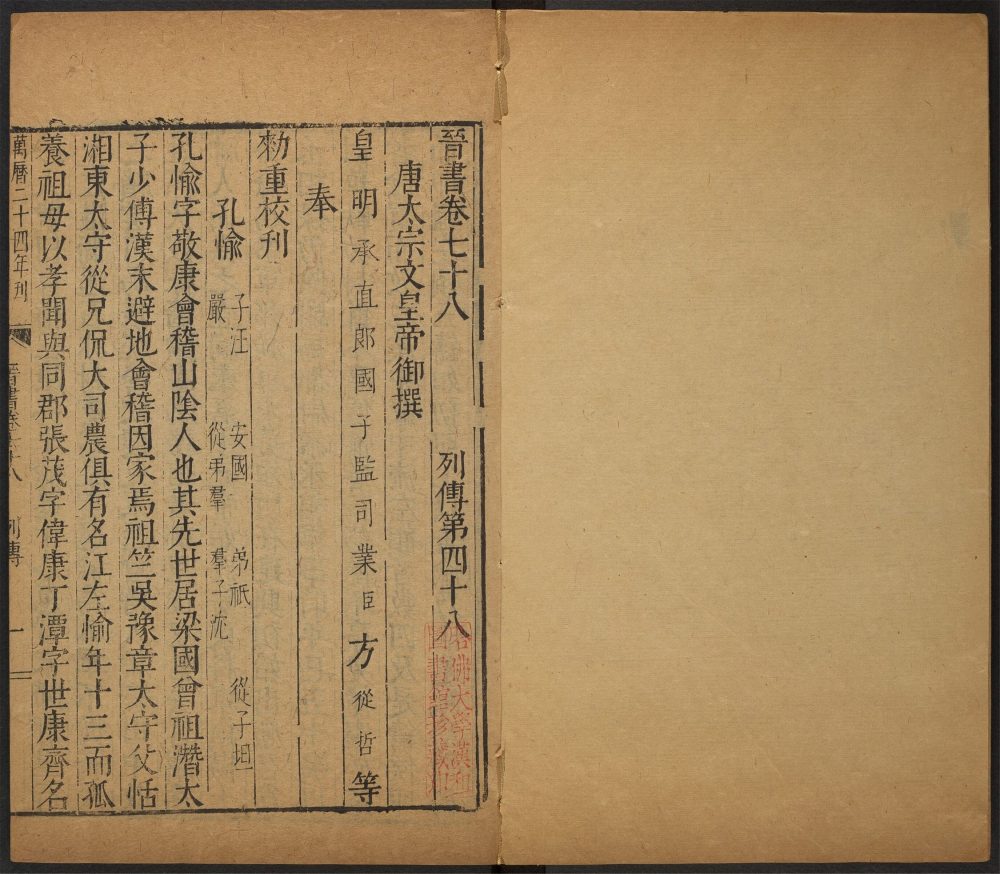 晉書卷七十八 列傳第四十八
唐太宗文皇帝御撰
皇明承直郎國子監司業臣方從哲等
奉
勑重校刊
孔愉 子汪 安國 弟祇 從子坦
嚴 從弟羣 羣子沈
孔愉字敬康會稽山陰人也其先世居梁國曾祖潛太
子少傅漢末避地會稽因家焉祖竺吳豫章太守父恬
湘東太守從兄侃大司農俱有名江左愉年十三而孤
養祖母以孝聞與同郡張茂字偉康丁潭字世康齊名
萬曆二十四年刊 晉書卷七十八 列傳 一
哈佛大學漢和
圖書館珍藏印